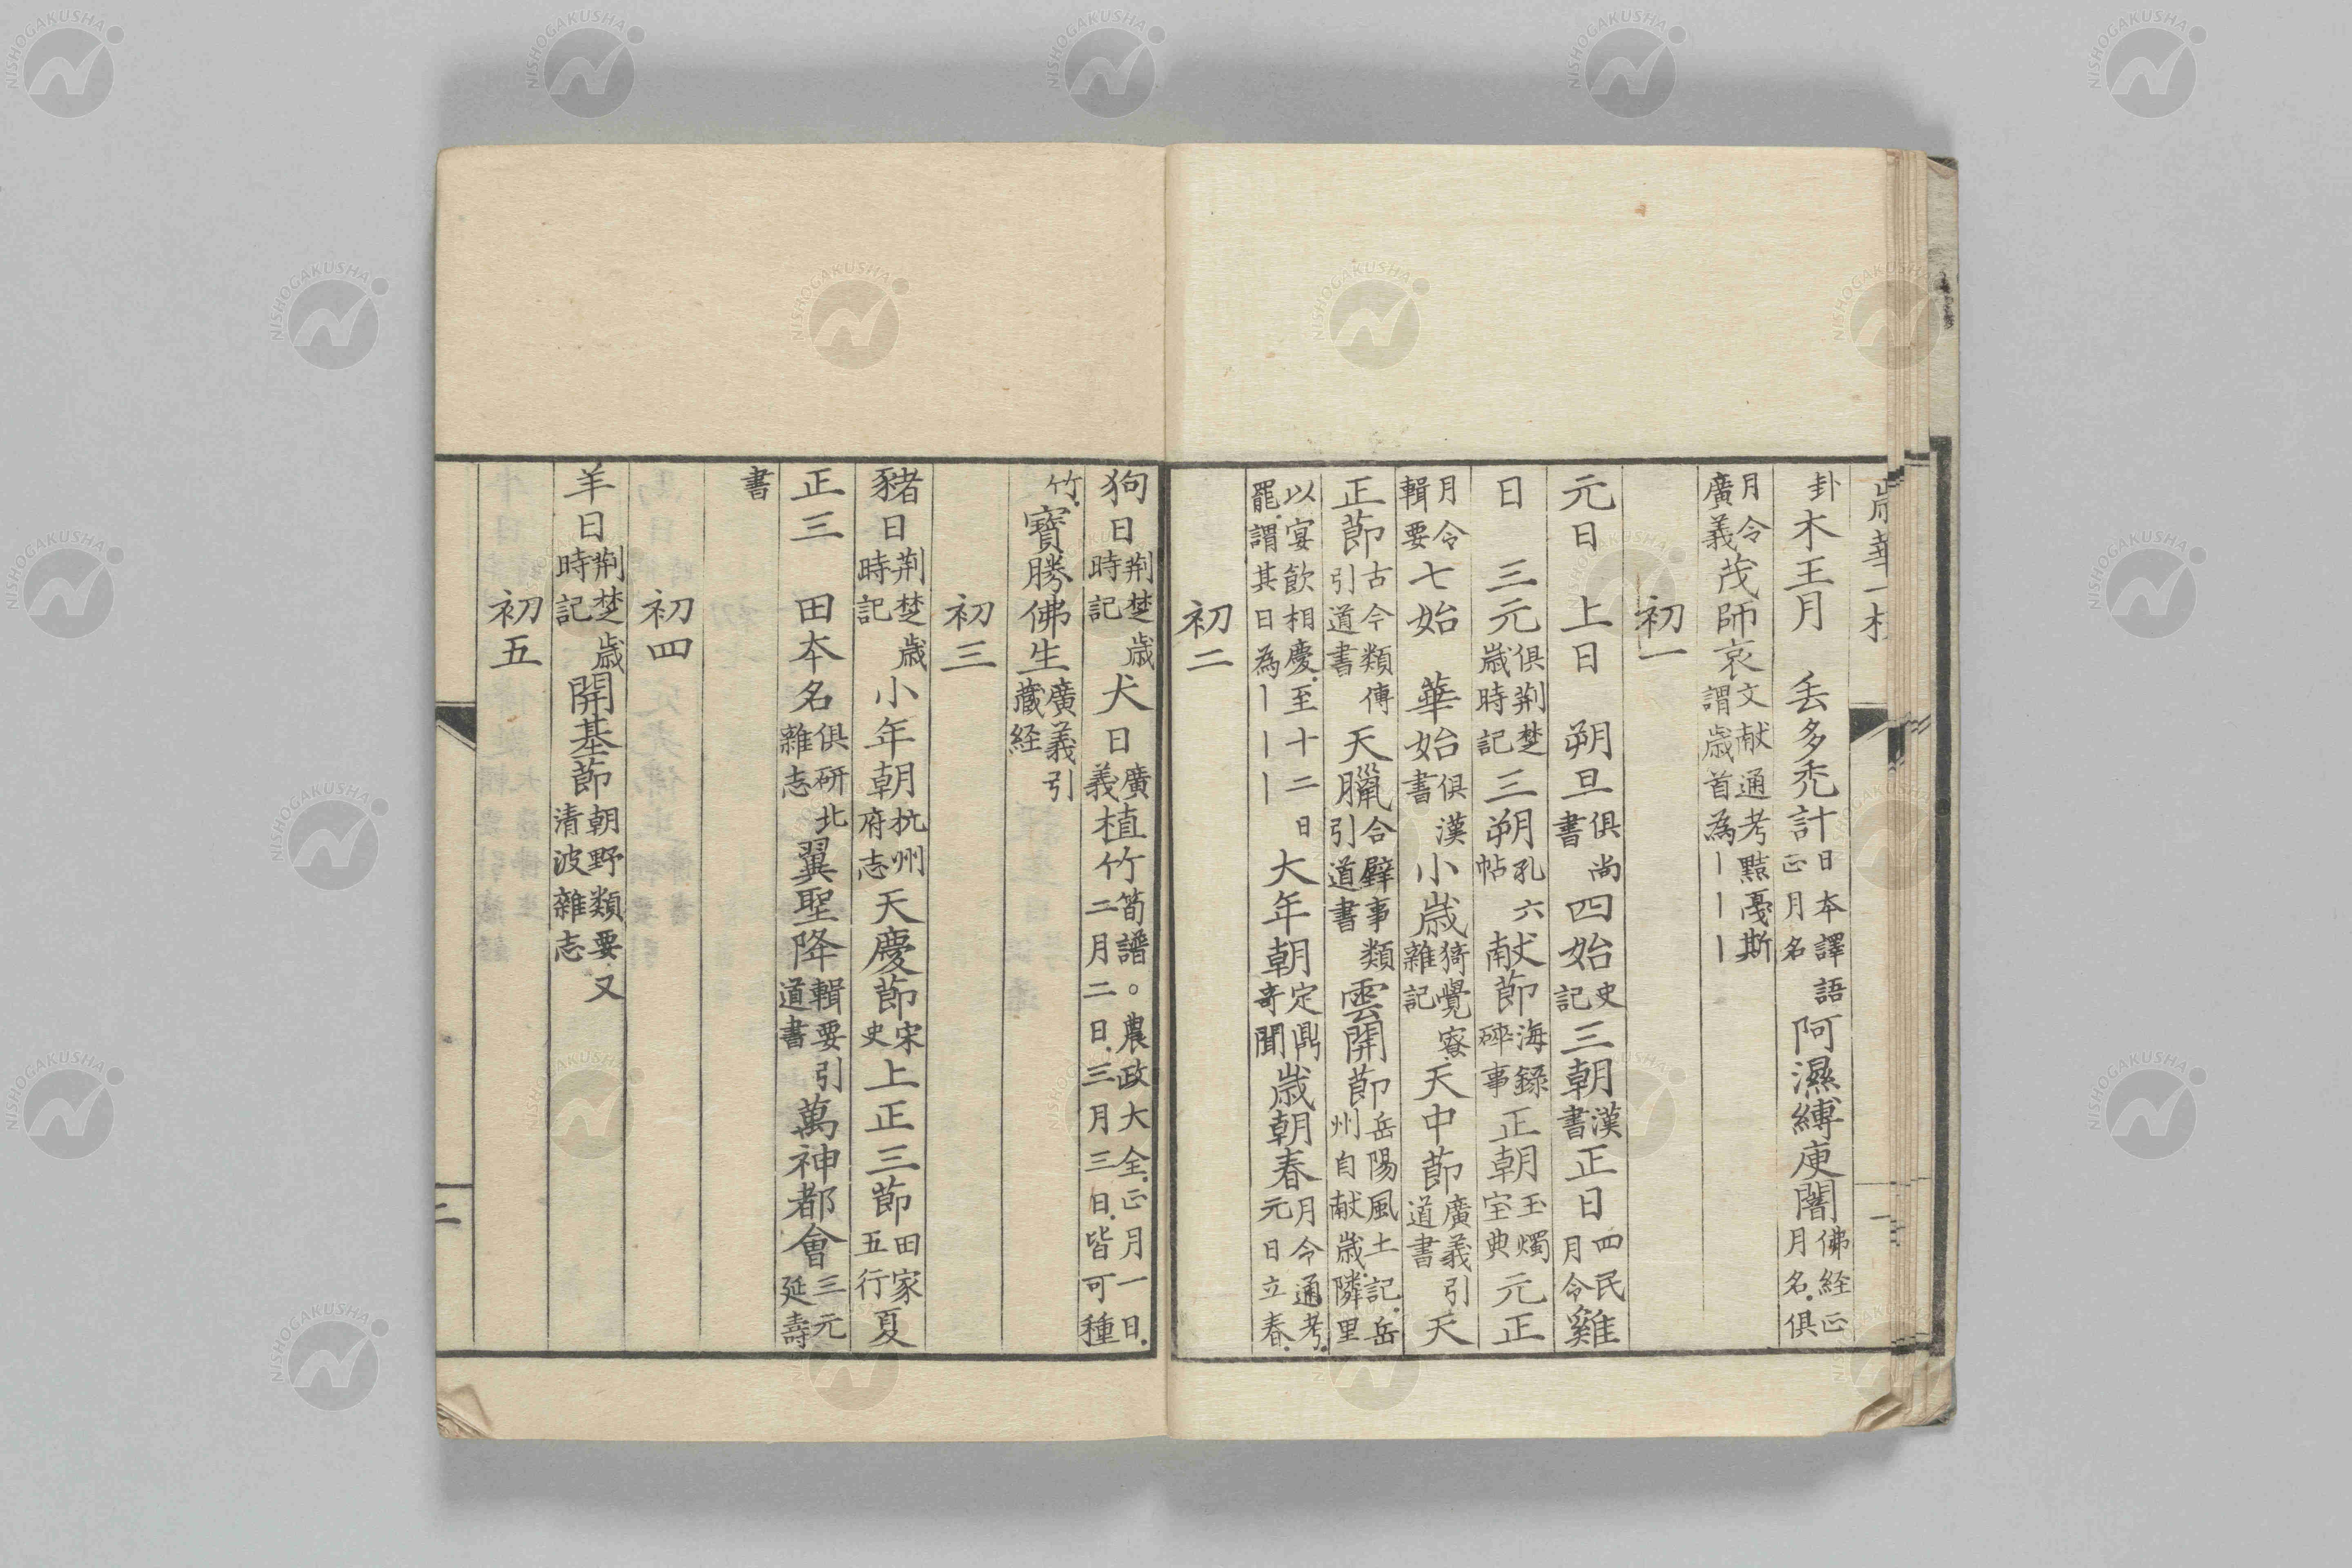 歳華一枝
卦木王月　丢多禿計日本譯語正月名阿濕縛庾闍佛経正月名俱
月令廣義茂師哀文献通考㸃戞斯謂歳首為｜｜｜
初一
元日　上日　朔旦俱尚書四始史記三朝漢書正日四民月令雞
日　三元俱荆楚歳時記三朔孔六帖献節海録碎事正朝玉燭宝典元正
月令輯要七始　華始俱漢書小歳猗覺寮雜記天中節廣義引道書天
正節古今類傳引道書天臘合璧事類引道書雲開節岳陽風土記岳州自献歳隣里
以宴飲相慶至十二日罷謂其日為｜｜｜大年朝定鼎奇聞歳朝春月令通考元日立春
初二
狗日荆楚歳時記犬日廣義植竹筍譜。農政大全正月一日二月二日三月三日皆可種
竹寶勝佛生廣義引蔵経
初三
豬日荆楚歳時記小年朝杭州府志天慶節宋史上正三節田家五行夏
正三　田本名俱研北雜志翼聖降輯要引道書萬神都會三元延壽
書
初四
羊日荆楚歳時記開基節朝野類要又清波雜志
初五
三
NISHOGAKUSHA